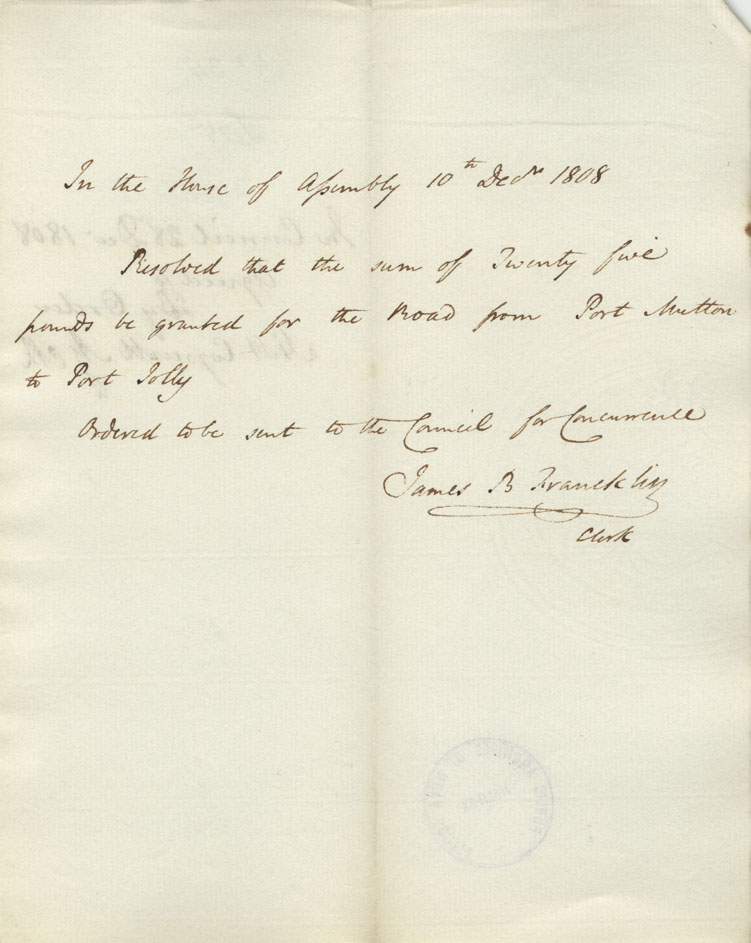 In the House of Assembly 10th Decr 1808
Resolved that the sum of Twenty five
pounds be granted for the Road from Port Mutton
to Port Jolly
Ordered to be sent to the Council for Concurrence
James B Franckklin
Clerk
In Council 28 Dec 1808
Agreed to
By Order